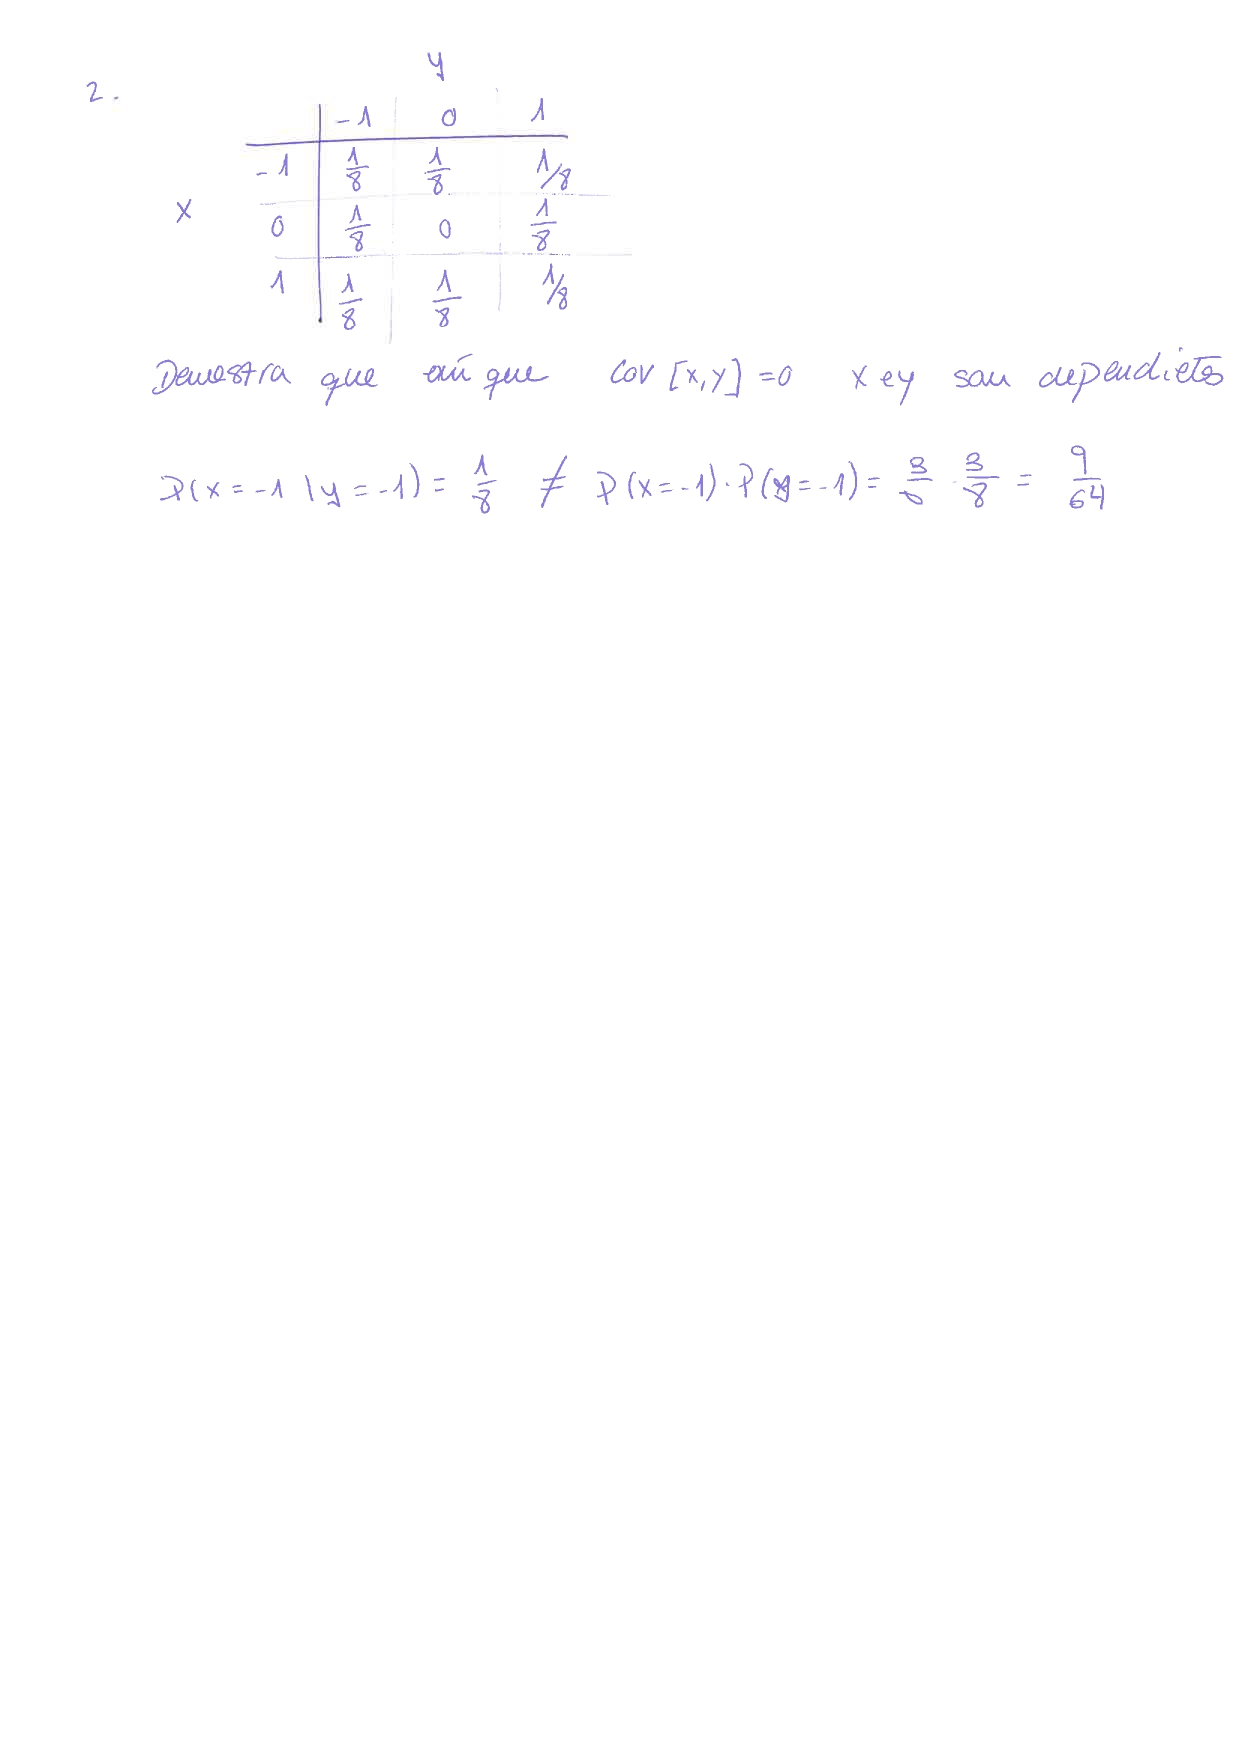 y
2.
-1 0 1
-1 1/8 1/8 1/8
x 0 1/8 0 1/8
1 1/8 1/8 1/8
Demostra que aun que Cov [x,y] = 0 x e y son dependietes
P(x = -1 \ y = -1) = 1/8 ≠ P(x = -1) · P(y = -1) = 3/8 · 3/8 = 9/64